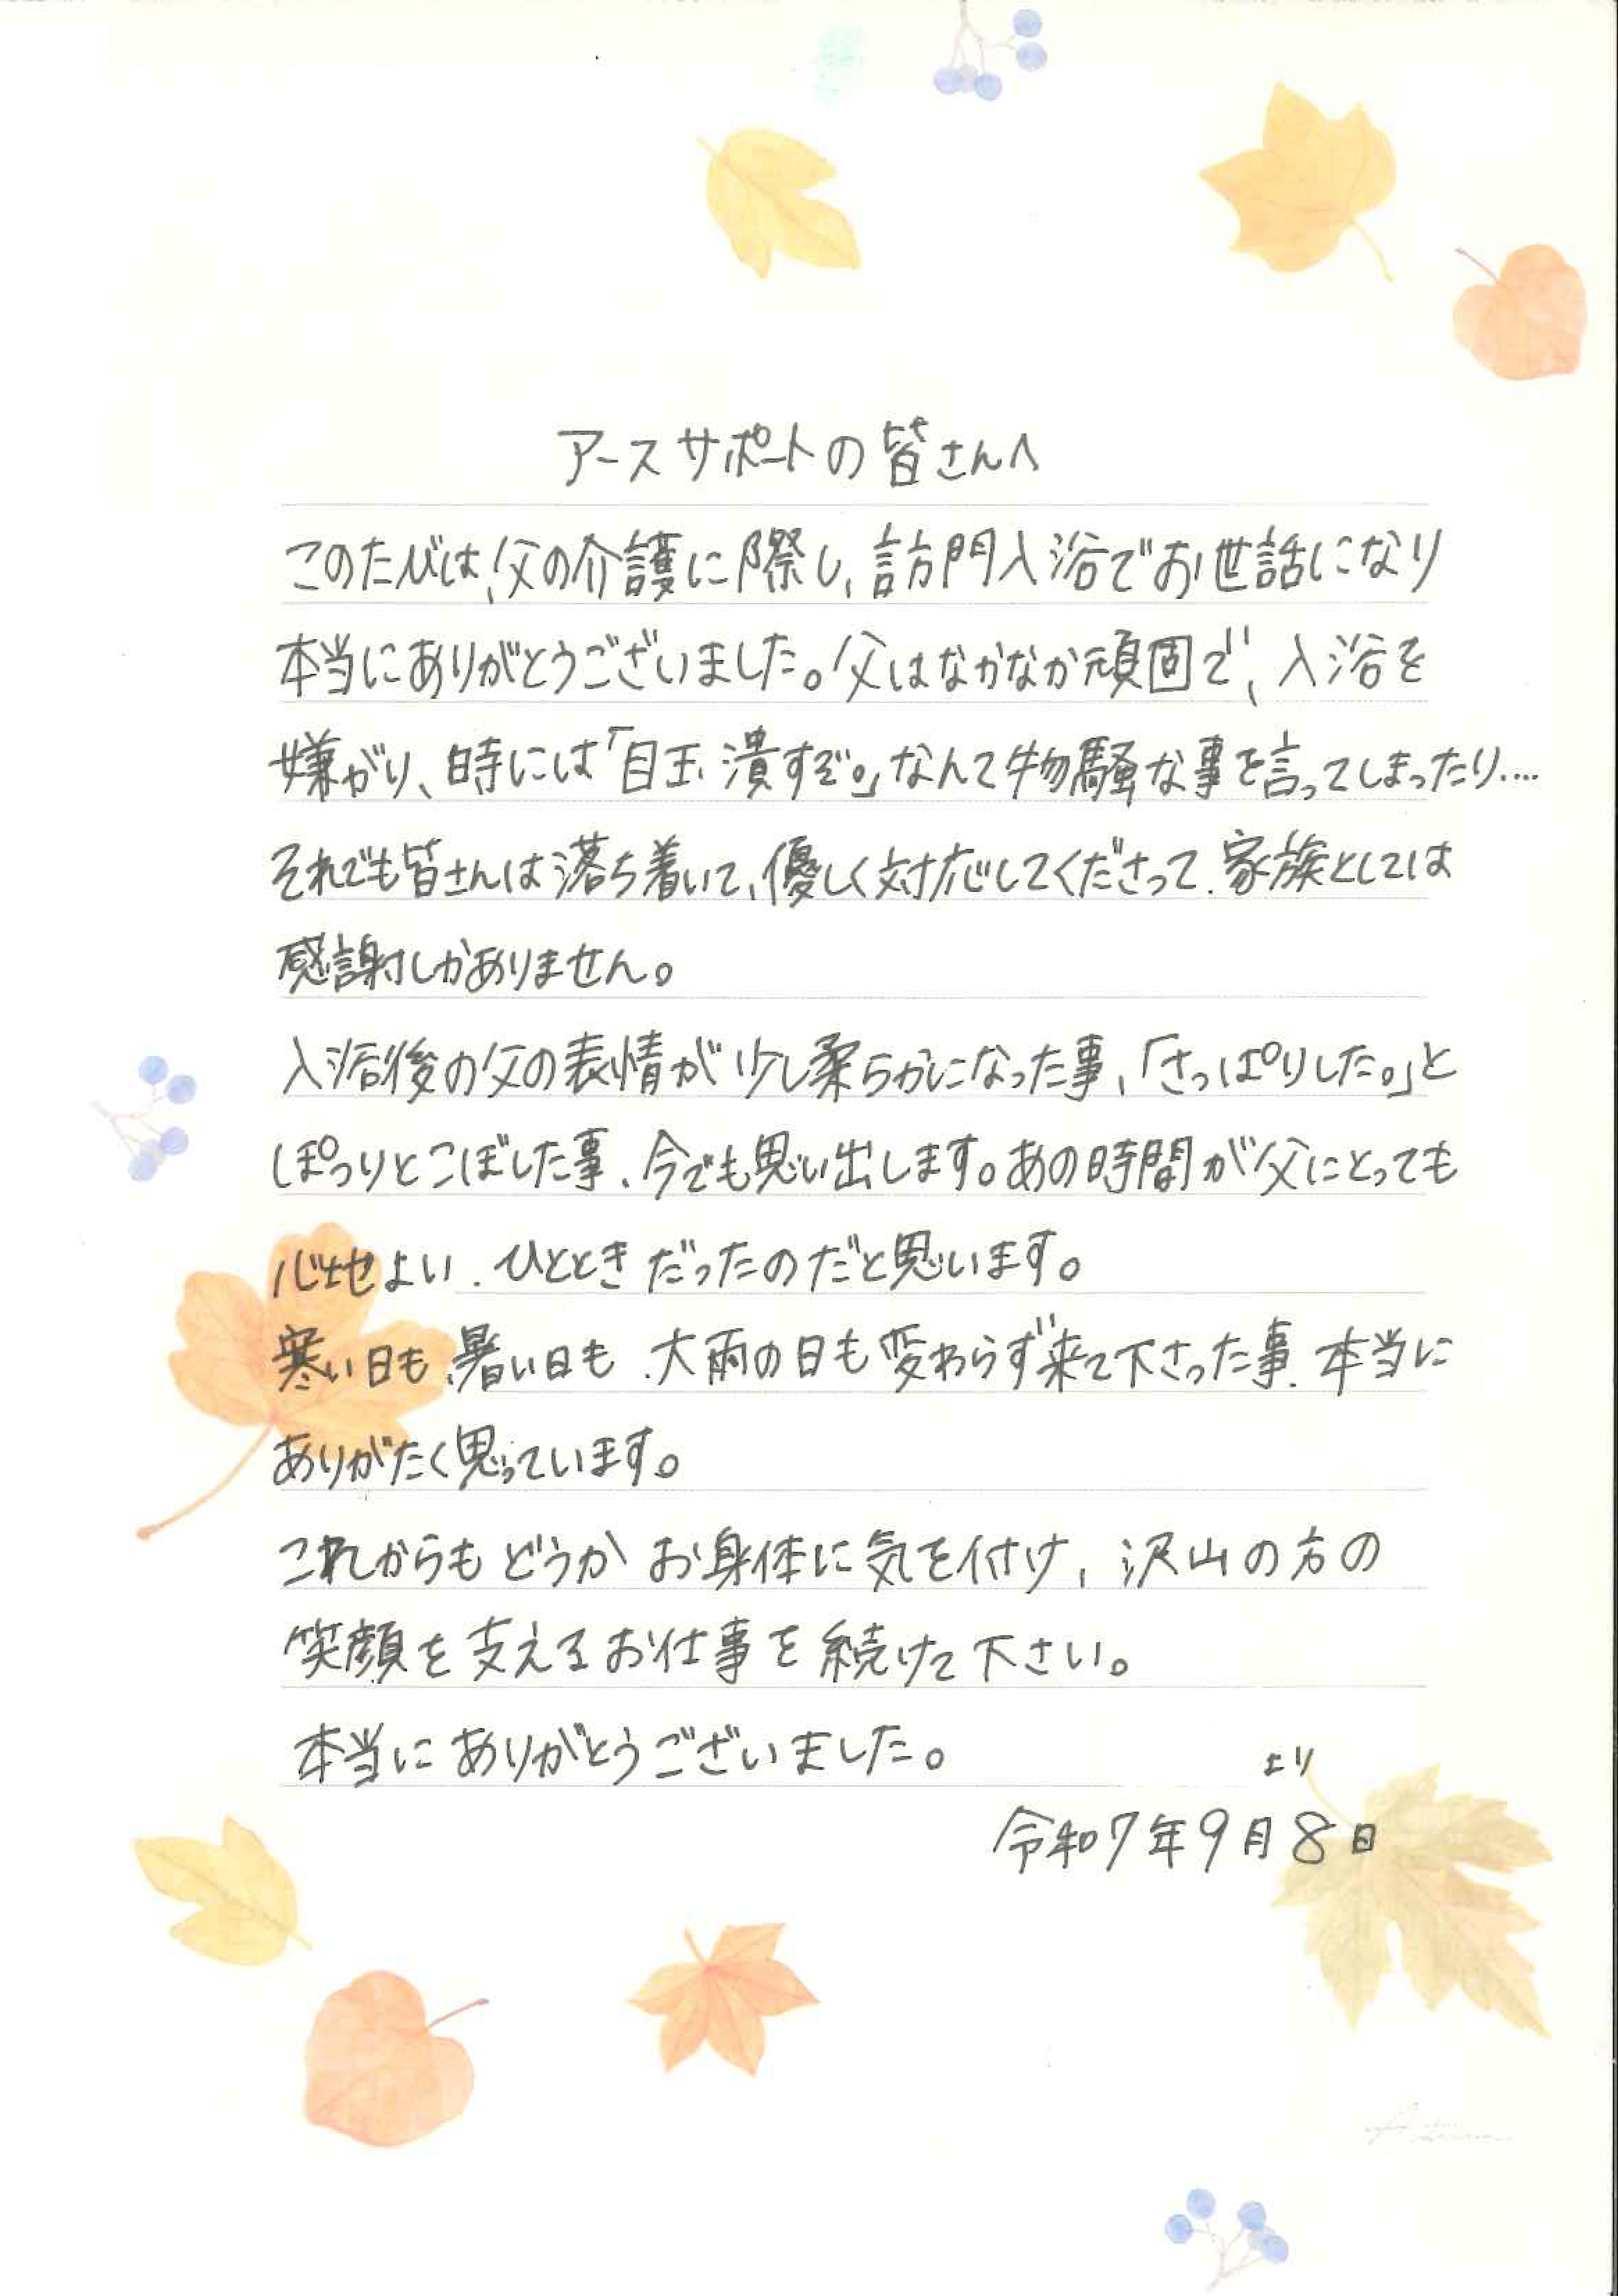 アースサポートの皆さんへ
このたびは、父の介護に際し、訪問入浴でお世話になり
本当にありがとうございました。父はなかなか頑固で、入浴を
嫌がり、時には「目玉潰すぞ。」なんて物騒な事を言ってしまったり....
それでも皆さんは落ち着いて、優しく対応してくださって、家族としては
感謝しかありません。
入浴後の父の表情が少し柔らかになった事、「さっぱりした。」と
ぽつりとこぼした事、今でも思い出します。あの時間が父にとっても
心地よい、ひとときだったのだと思います。
寒い日も、暑い日も、大雨の日も変わらず来て下さった事、本当に
ありがたく思っています。
これからもどうかお身体に気を付け、沢山の方の
笑顔を支えるお仕事を続けて下さい。
本当にありがとうございました。 より
令和7年9月8日